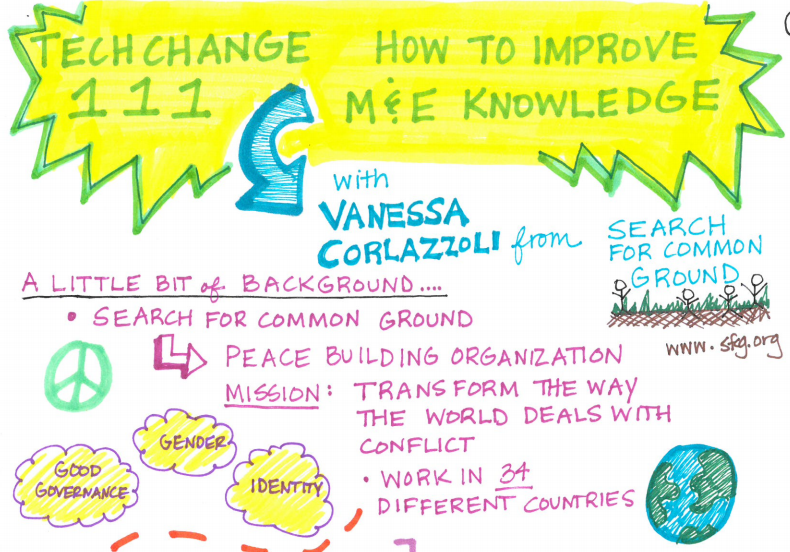 TECHCHANGE
111
HOW TO IMPROVE
M&E KNOWLEDGE
with
VANESSA
CORLAZZOLI from
SEARCH
FOR COMMON
GROUND
www.sfg.org
A LITTLE BIT of BACKGROUND....
• SEARCH FOR COMMON GROUND
PEACE BUILDING ORGANIZATION
MISSION: TRANSFORM THE WAY
THE WORLD DEALS WITH
CONFLICT
• WORK IN 34
DIFFERENT COUNTRIES
GOOD
GOVERNANCE
GENDER
IDENTITY